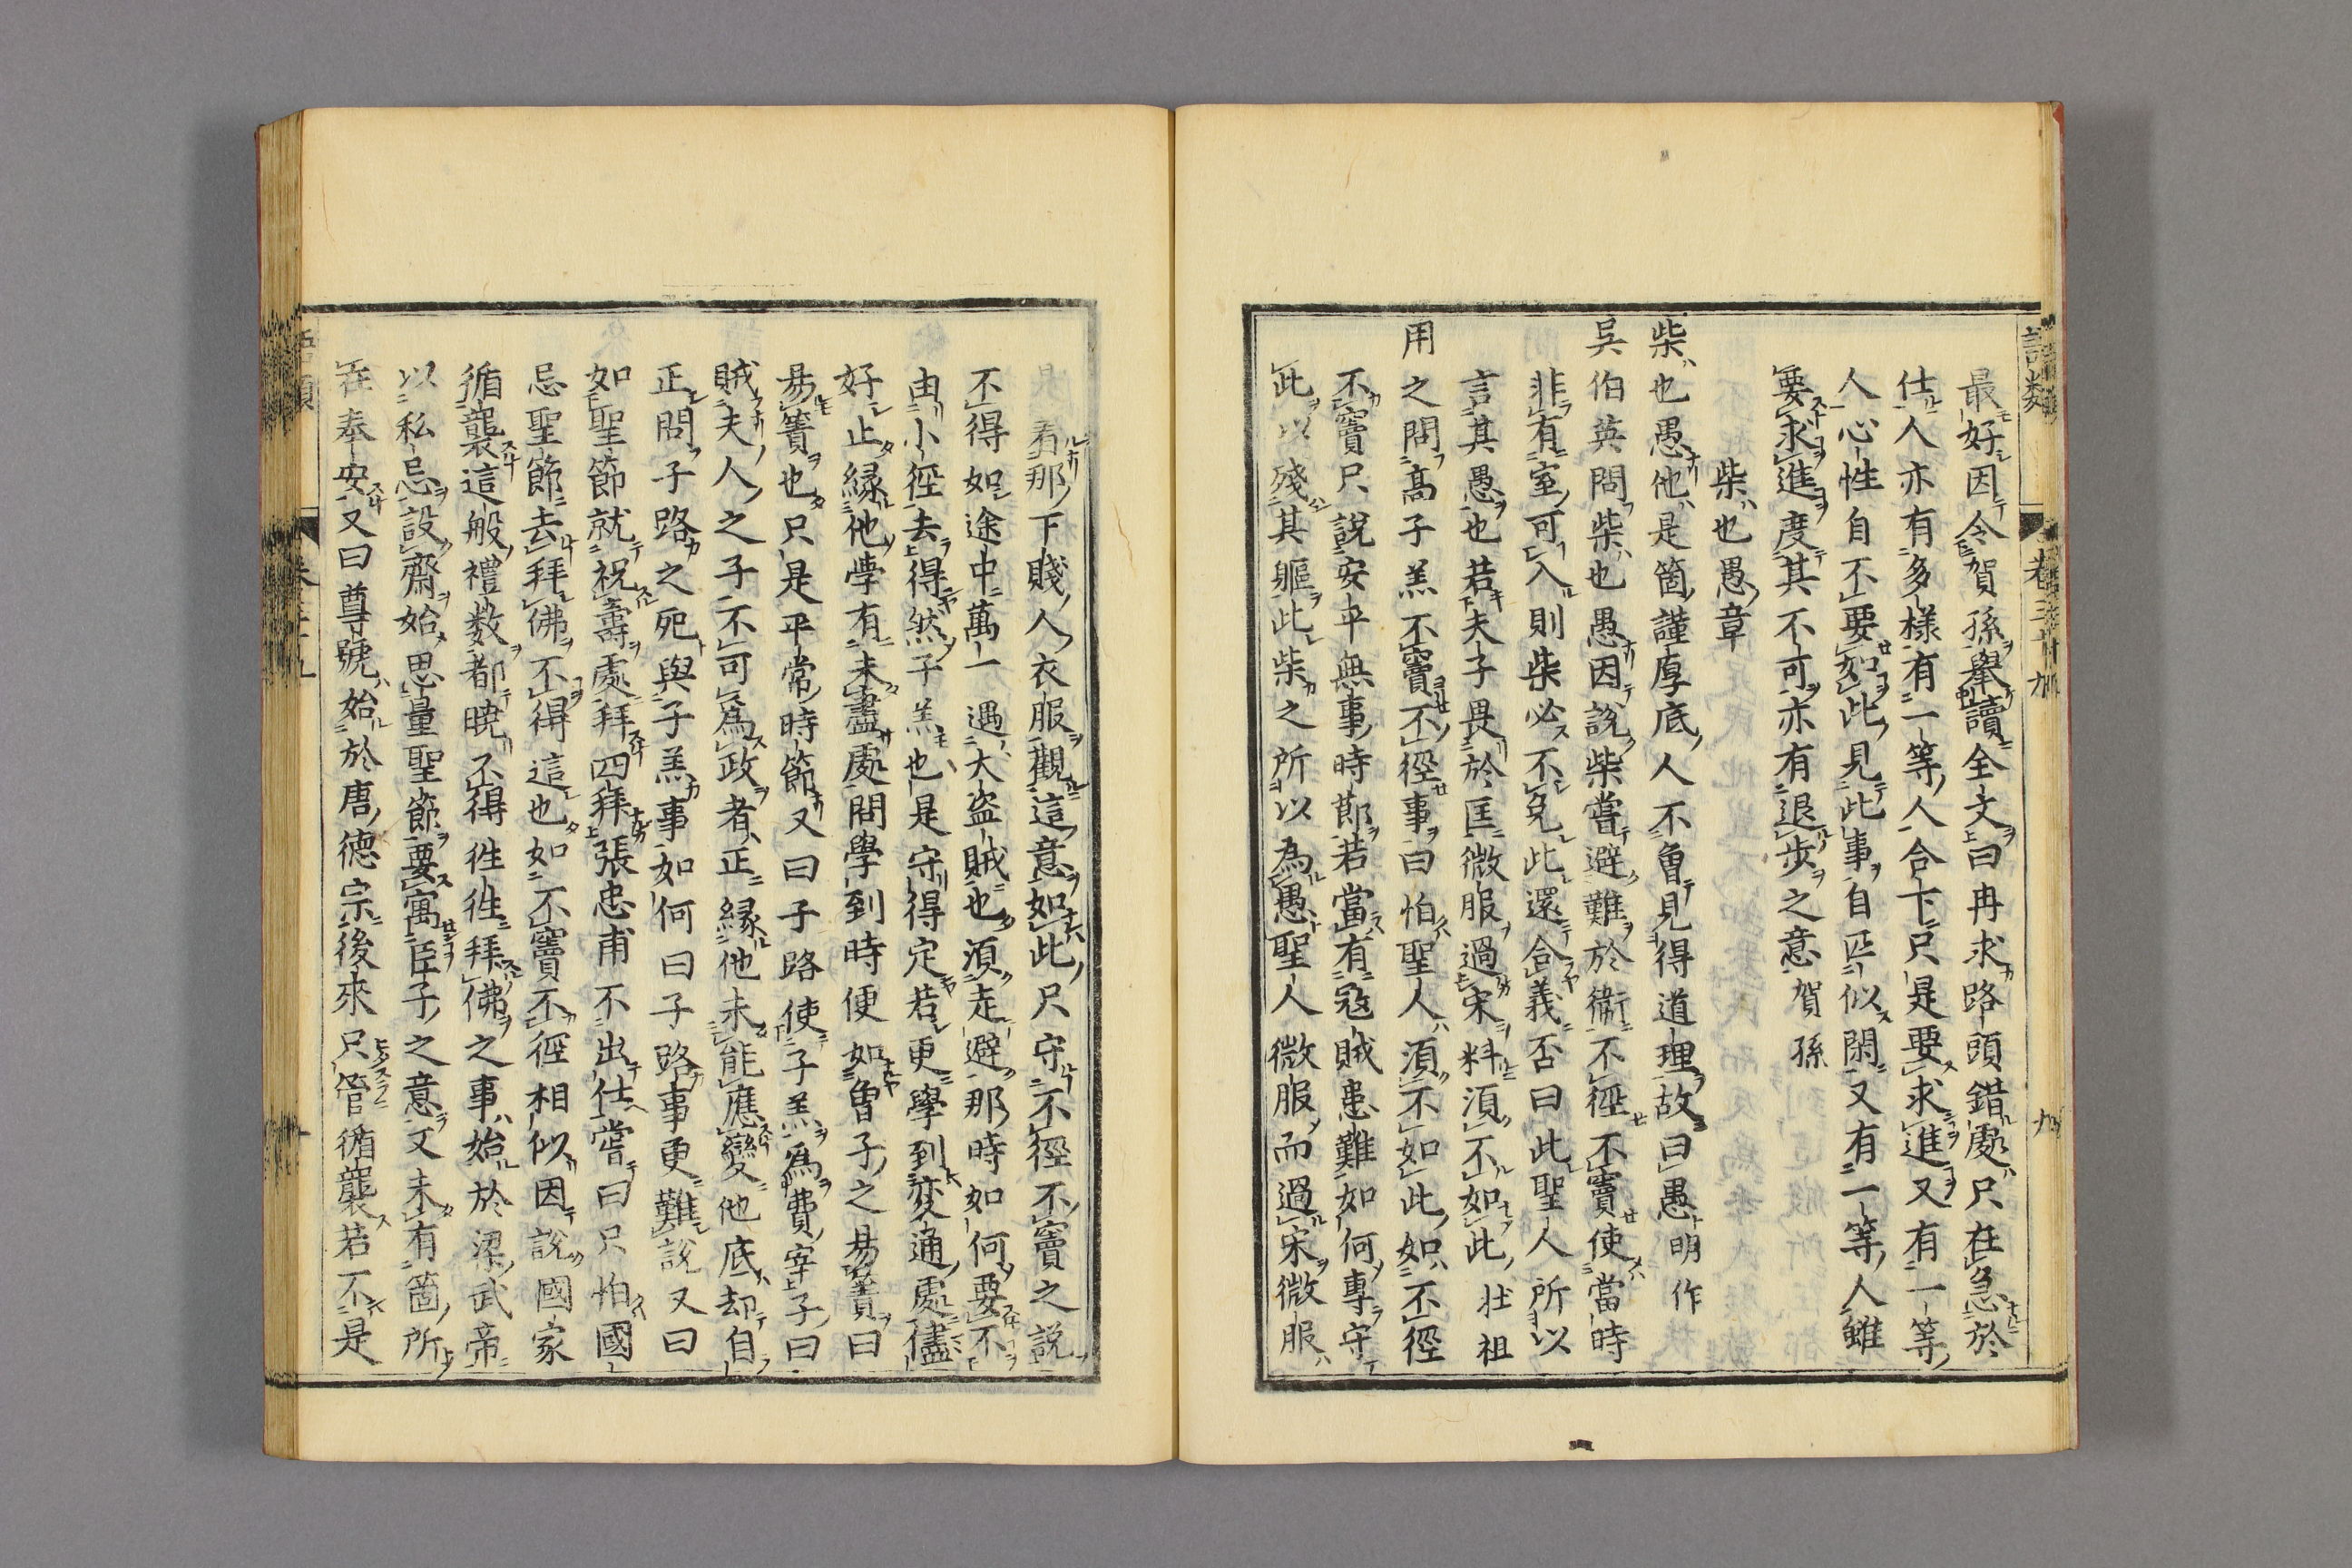 語類
卷三十九
九
最好因令賀孫舉讀全文曰冉求路頭錯處只在急於
仕人亦有多樣有一等人合下只是要求進又有一等
人心性自不要如此見此事自匹似閑又有一等人雖
要求進度其不可亦有退步之意賀孫
柴也愚章
柴也愚他是箇謹厚底人不曾見得道理故曰愚明作
吳伯英問柴也愚因說柴嘗避難於衞不徑不竇使當時
非有室可入則柴必不免此還合義否曰此聖人所以
言其愚也若夫子畏於匡微服過宋料須不如此壯祖
用之問高子羔不竇不徑事曰怕聖人須不如此如不徑
不竇只說安平無事時節若當有寇賊患難如何專守
此以殘其軀此柴之所以為愚聖人微服而過宋微服
是著那下賤人衣服觀這意如此只守不徑不竇之說
不得如途中萬一遇大盗賊也須走避那時如何要不
由小徑去得然子羔也是守得定若更學到変通處儘
好止緣他學有未盡處問學到時便如曾子之易簀曰
易簀也只是平常時節又曰子路使子羔為費宰子曰
賊夫人之子不可為政者正緣他未能應變他底却自
正問子路之死與子羔事如何曰子路事更難說又曰
如聖節就祝壽處拜四拜張忠甫不出仕嘗曰只怕國
忌聖節去拜佛不得這也如不竇不徑相似因說國家
循襲這般禮数都曉不得徃徃拜佛之事始於梁武帝
以私忌設齋始思量聖節要寓臣子之意又未有箇所
在奉安又曰尊號始於唐德宗後來只管循襲若不是
語類
卷三十九